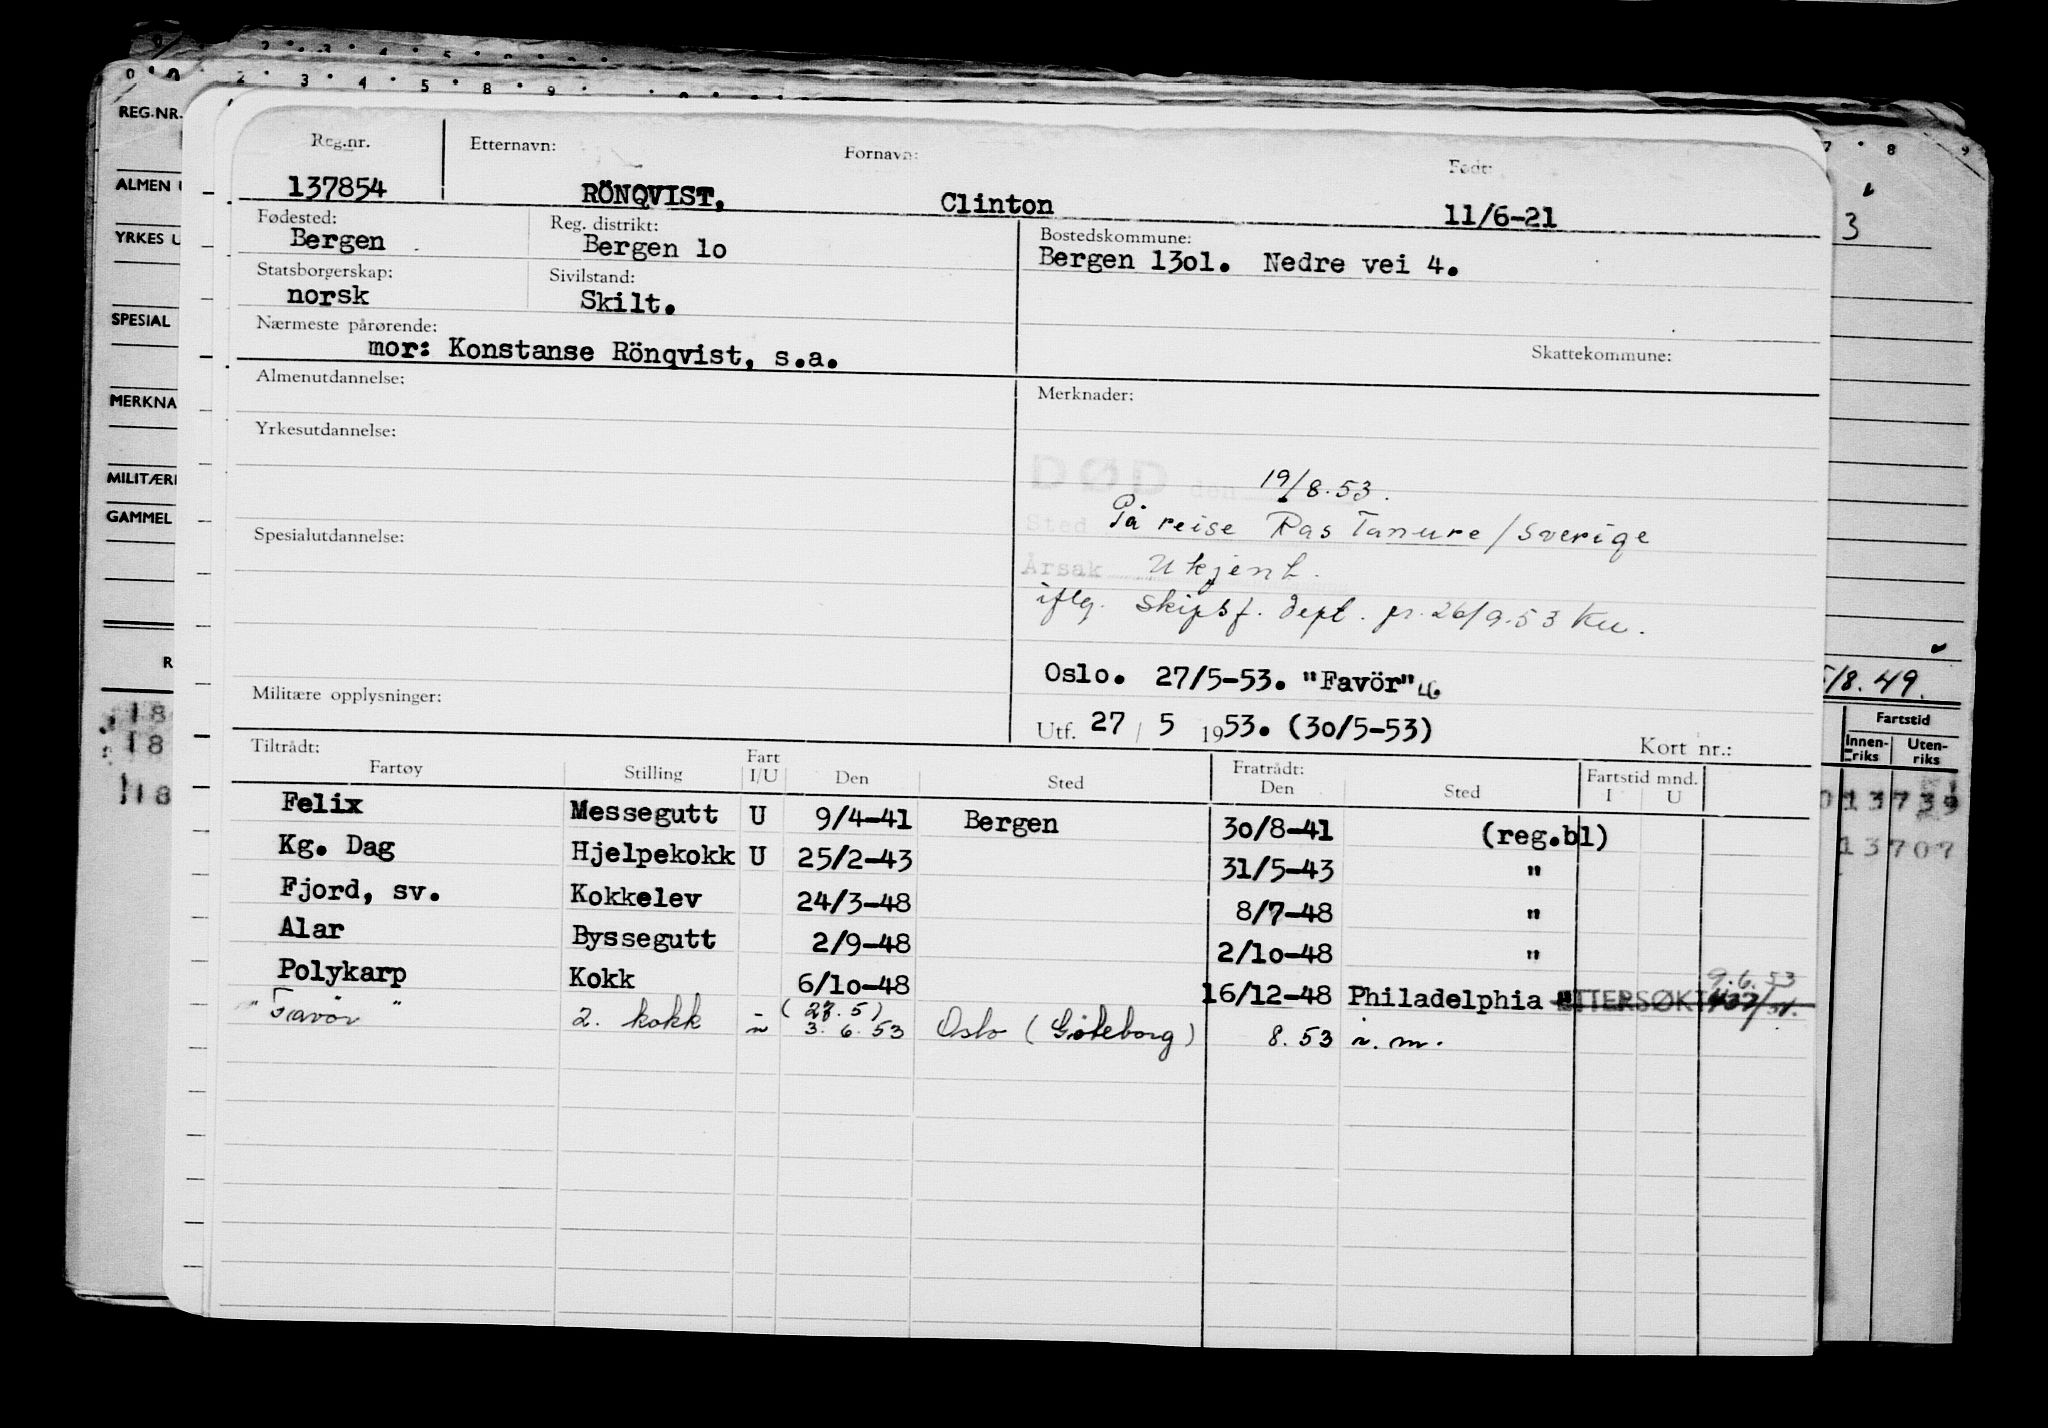 REG.NR.
ALMEN U
YRKES U
SPESIAL
MERKNA
MILITÆRE
GAMMEL
Reg.nr. Etternavn: Fornavn: Født:
137854 RÖNQVIST, Clinton 11/6-21
Fødested: Reg. distrikt: Bostedskommune:
Bergen Bergen 1o Bergen 13o1. Nedre vei 4.
Statsborgerskap: Sivilstand:
norsk Skilt.
Nærmeste pårørende: Skattekommune:
mor: Konstanse Rönqvist, s.a.
Almenutdannelse: Merknader:
Yrkesutdannelse:
DØD den 19/8.53.
Sted På reise Ras Tanure/Sverige
Spesialutdannelse:
Årsak Ukjent.
iflg. Skipsf. dept. pr. 26/9.53 Ku.
Oslo. 27/5-53. "Favör"
Militære opplysninger:
Utf. 27 / 5 1953. (3o/5-53)
Kort nr.:
Tiltrådt: Fratrådt:
Fartøy Stilling Fart I/U Den Sted Den Sted Fartstid mnd. I U
Felix Messegutt U 9/4-41 Bergen 3o/8-41 (reg.bl)
Kg. Dag Hjelpekokk U 25/2-43 31/5-43 "
Fjord, sv. Kokkelev 24/3-48 8/7-48 "
Alar Byssegutt 2/9-48 2/1o-48 "
Polykarp Kokk 6/1o-48 16/12-48 Philadelphia " ETTERSØKT 9.6.53
"Favör" 2. kokk (27.5) 3.6.53 Oslo (Göteborg) 8.53 n.m.
3
/8.49.
Fartstid
Innen-riks Uten-riks
13739
13707